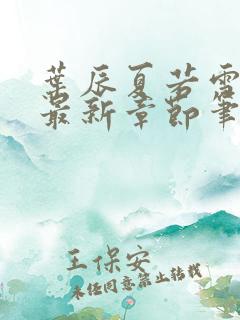 葉辰夏若雪
最新章節筆
王保安
未经同意禁止转载